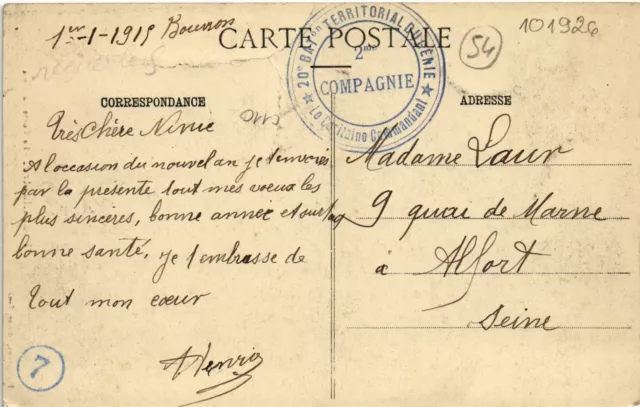 1er-1-1915 Bourron
CARTE POSTALE
101926
54
20e BATon TERRITORIAL DU GÉNIE
2me
COMPAGNIE
Le Capitaine Commandant
CORRESPONDANCE
ADRESSE
Très Chère Ninie
A l'occasion du nouvel an je t'envoies
par la présente tout mes voeux les
plus sincères, bonne année et surtout
bonne santé, je t'embrasse de
tout mon cœur
Henri
7
Madame Laur
9 quai de Marne
à Alfort
Seine